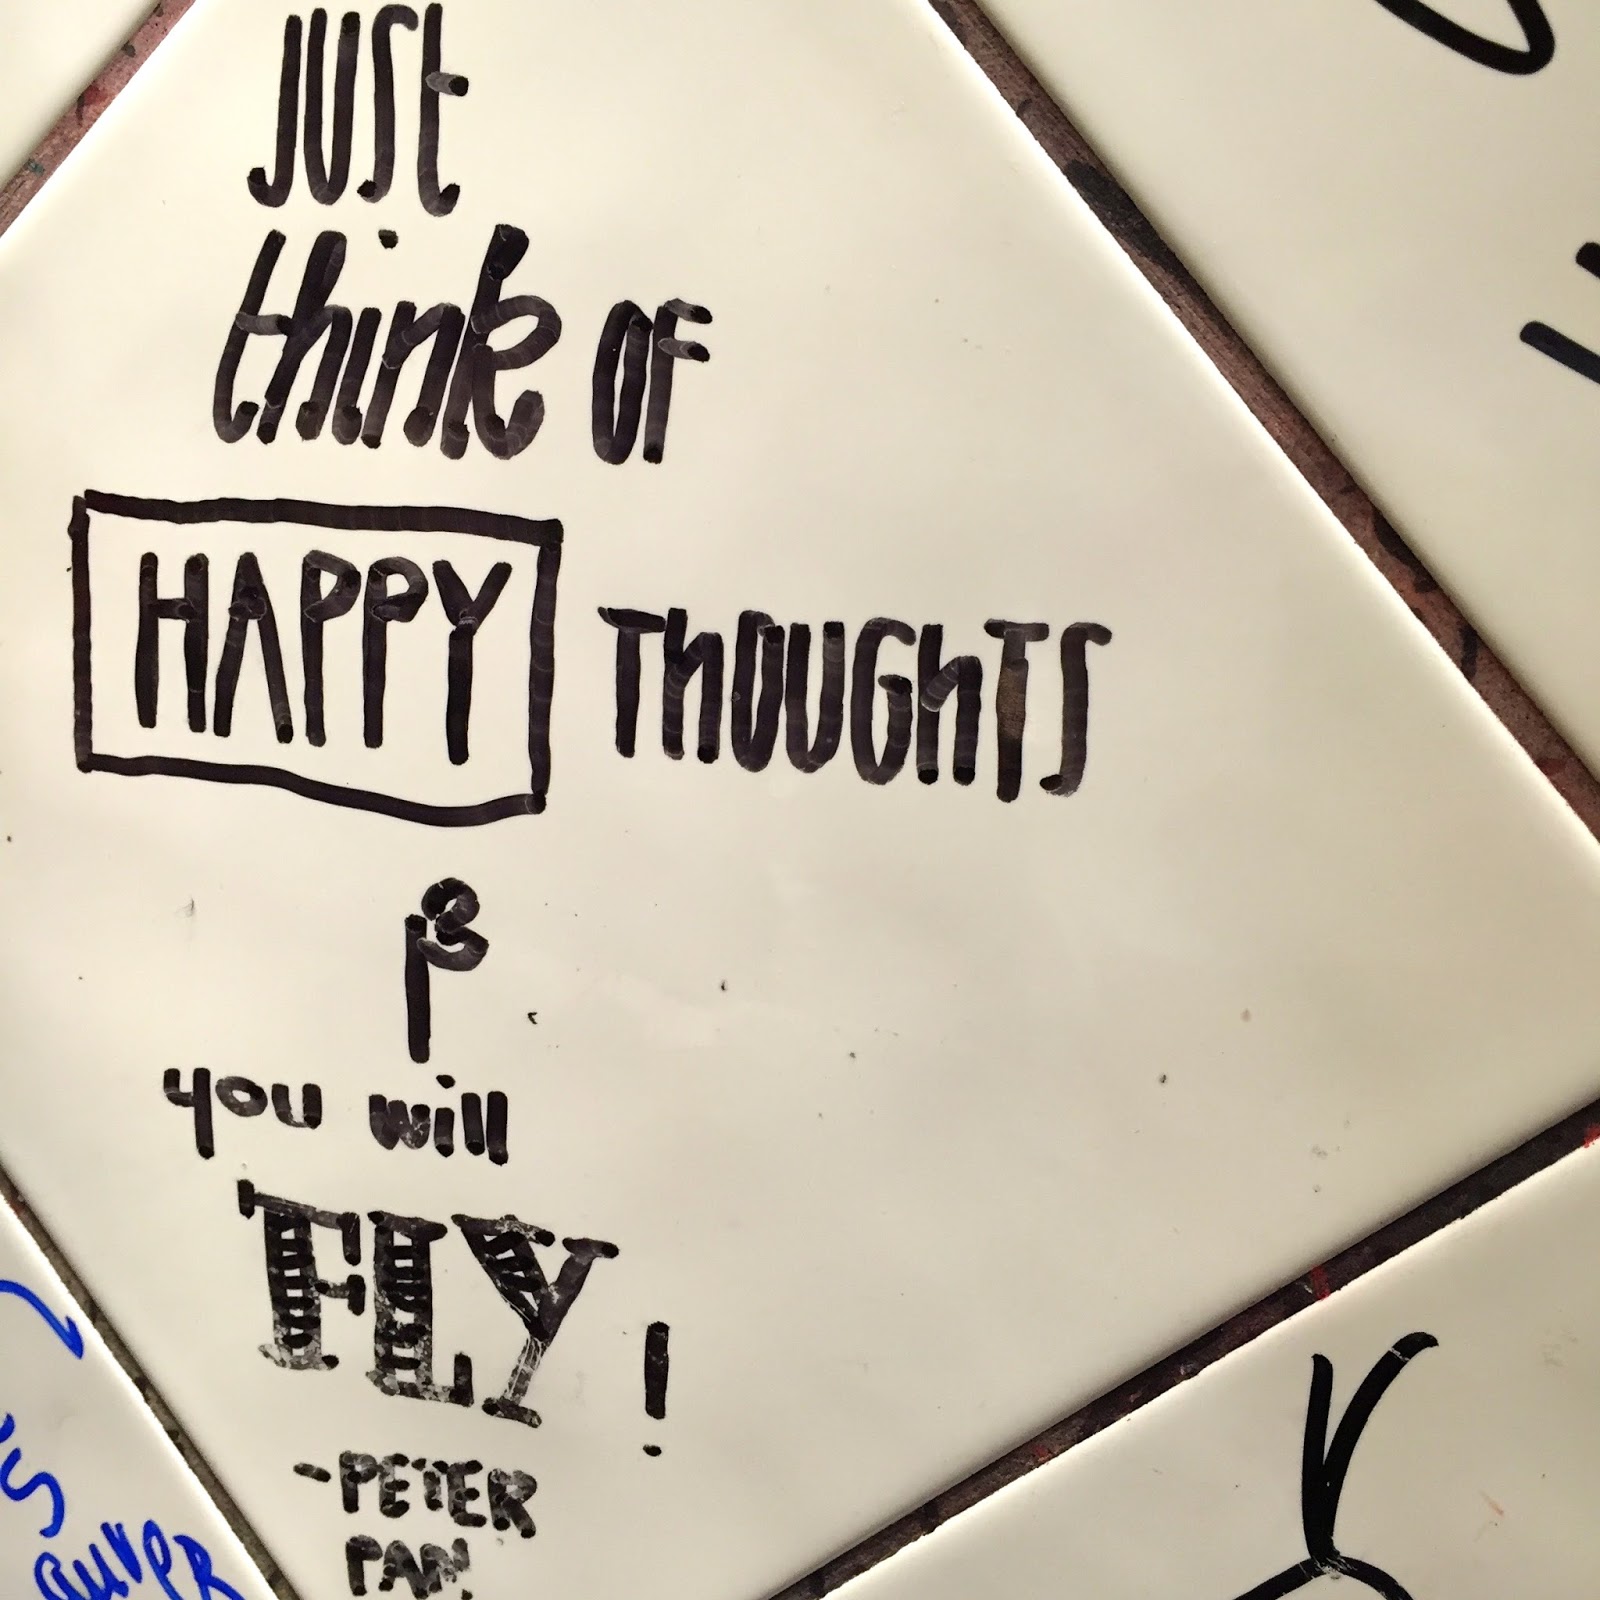 JUST
think OF
HAPPY THOUGHTS
&
you will
FLY!
-PETER
PAN.